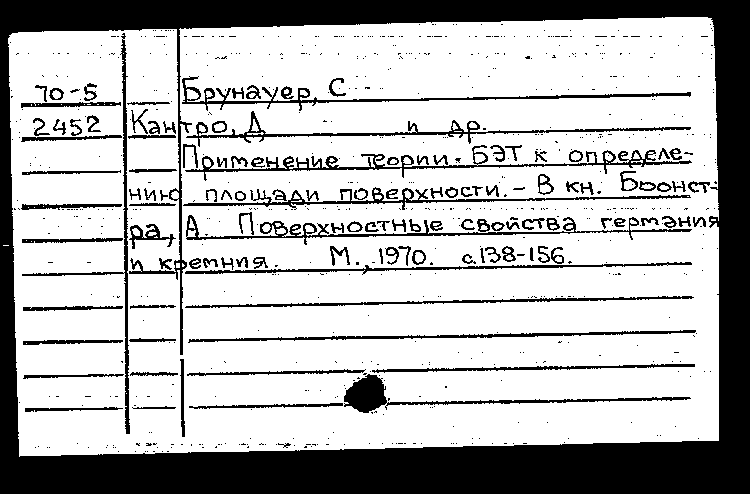 70-5 Брунауер, С
2452 Кантро, Д и др.
Применение теории БЭТ к определе-
нию площади поверхности. - В кн. Боонст-
ра, А. Поверхностные свойства германия
и кремния. М., 1970. с.138-156.